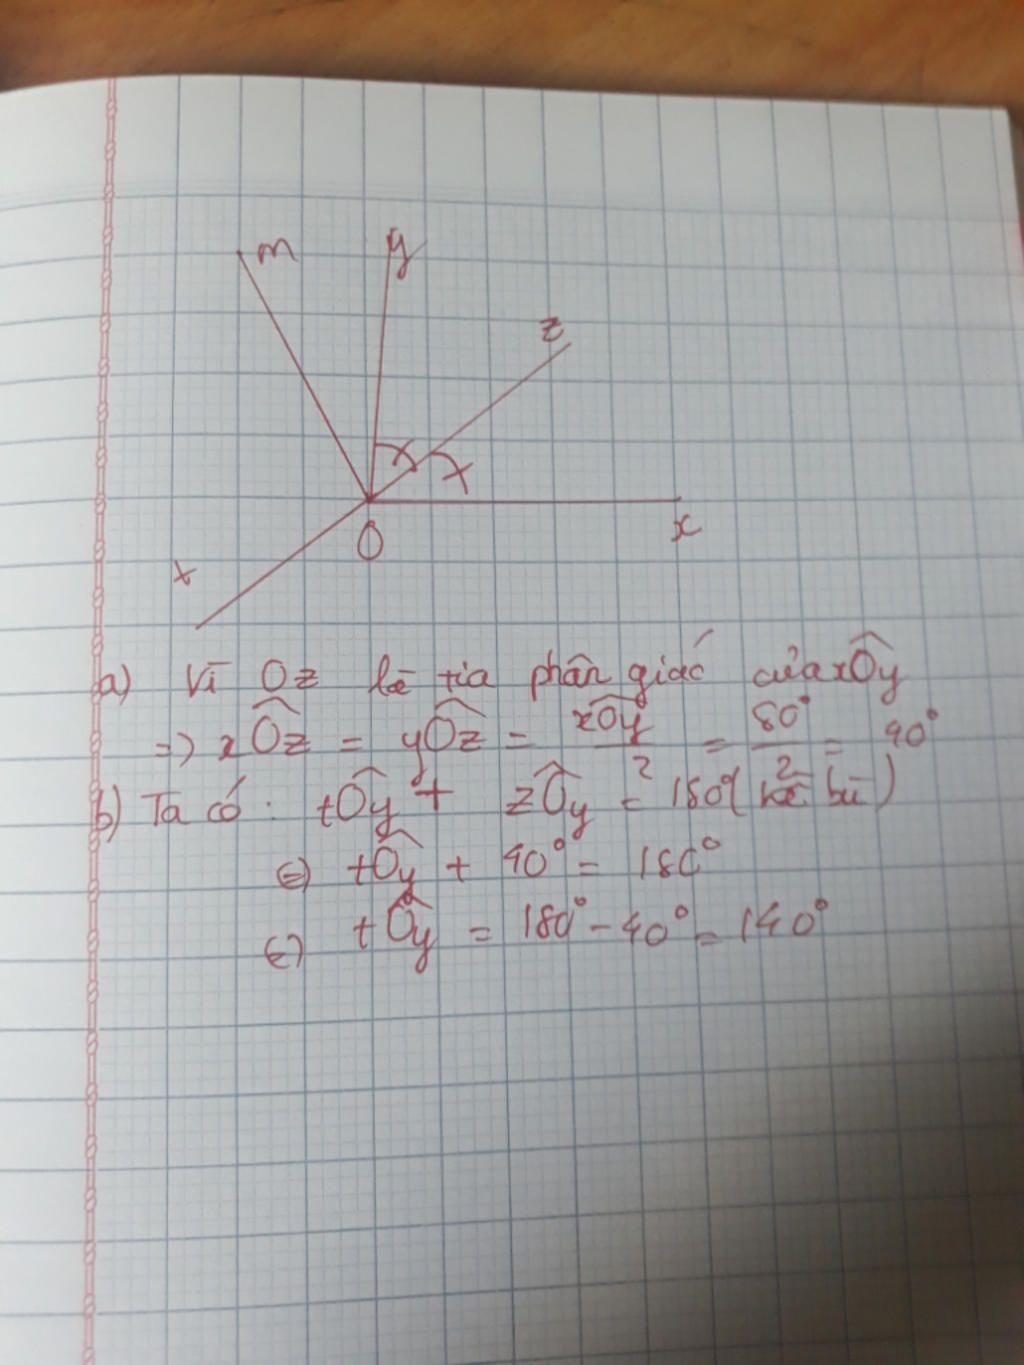 m
y
z
x
O
t
a) Vì Oz là tia phân giác của xÔy
=> xÔz = yÔz = xÔy/2 = 80°/2 = 40°
b) Ta có: tÔy + zÔy = 180° (kề bù)
(=) tÔy + 40° = 180°
(=) tÔy = 180° - 40° = 140°